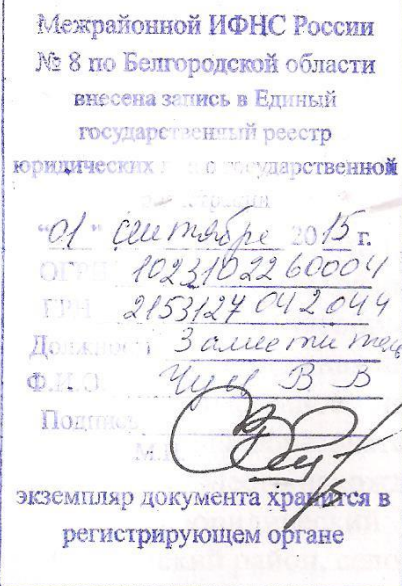 Межрайонной ИФНС России
№ 8 по Белгородской области
внесена запись в Единый
государственный реестр
юридических лиц о государственной
"01" сентября 2015 г.
ОГРН 1023102260004
ГРН 2153127042044
Должность Заместитель
Ф.И.О. Чуц В В
Подпись
М.П.
экземпляр документа хранится в
регистрирующем органе